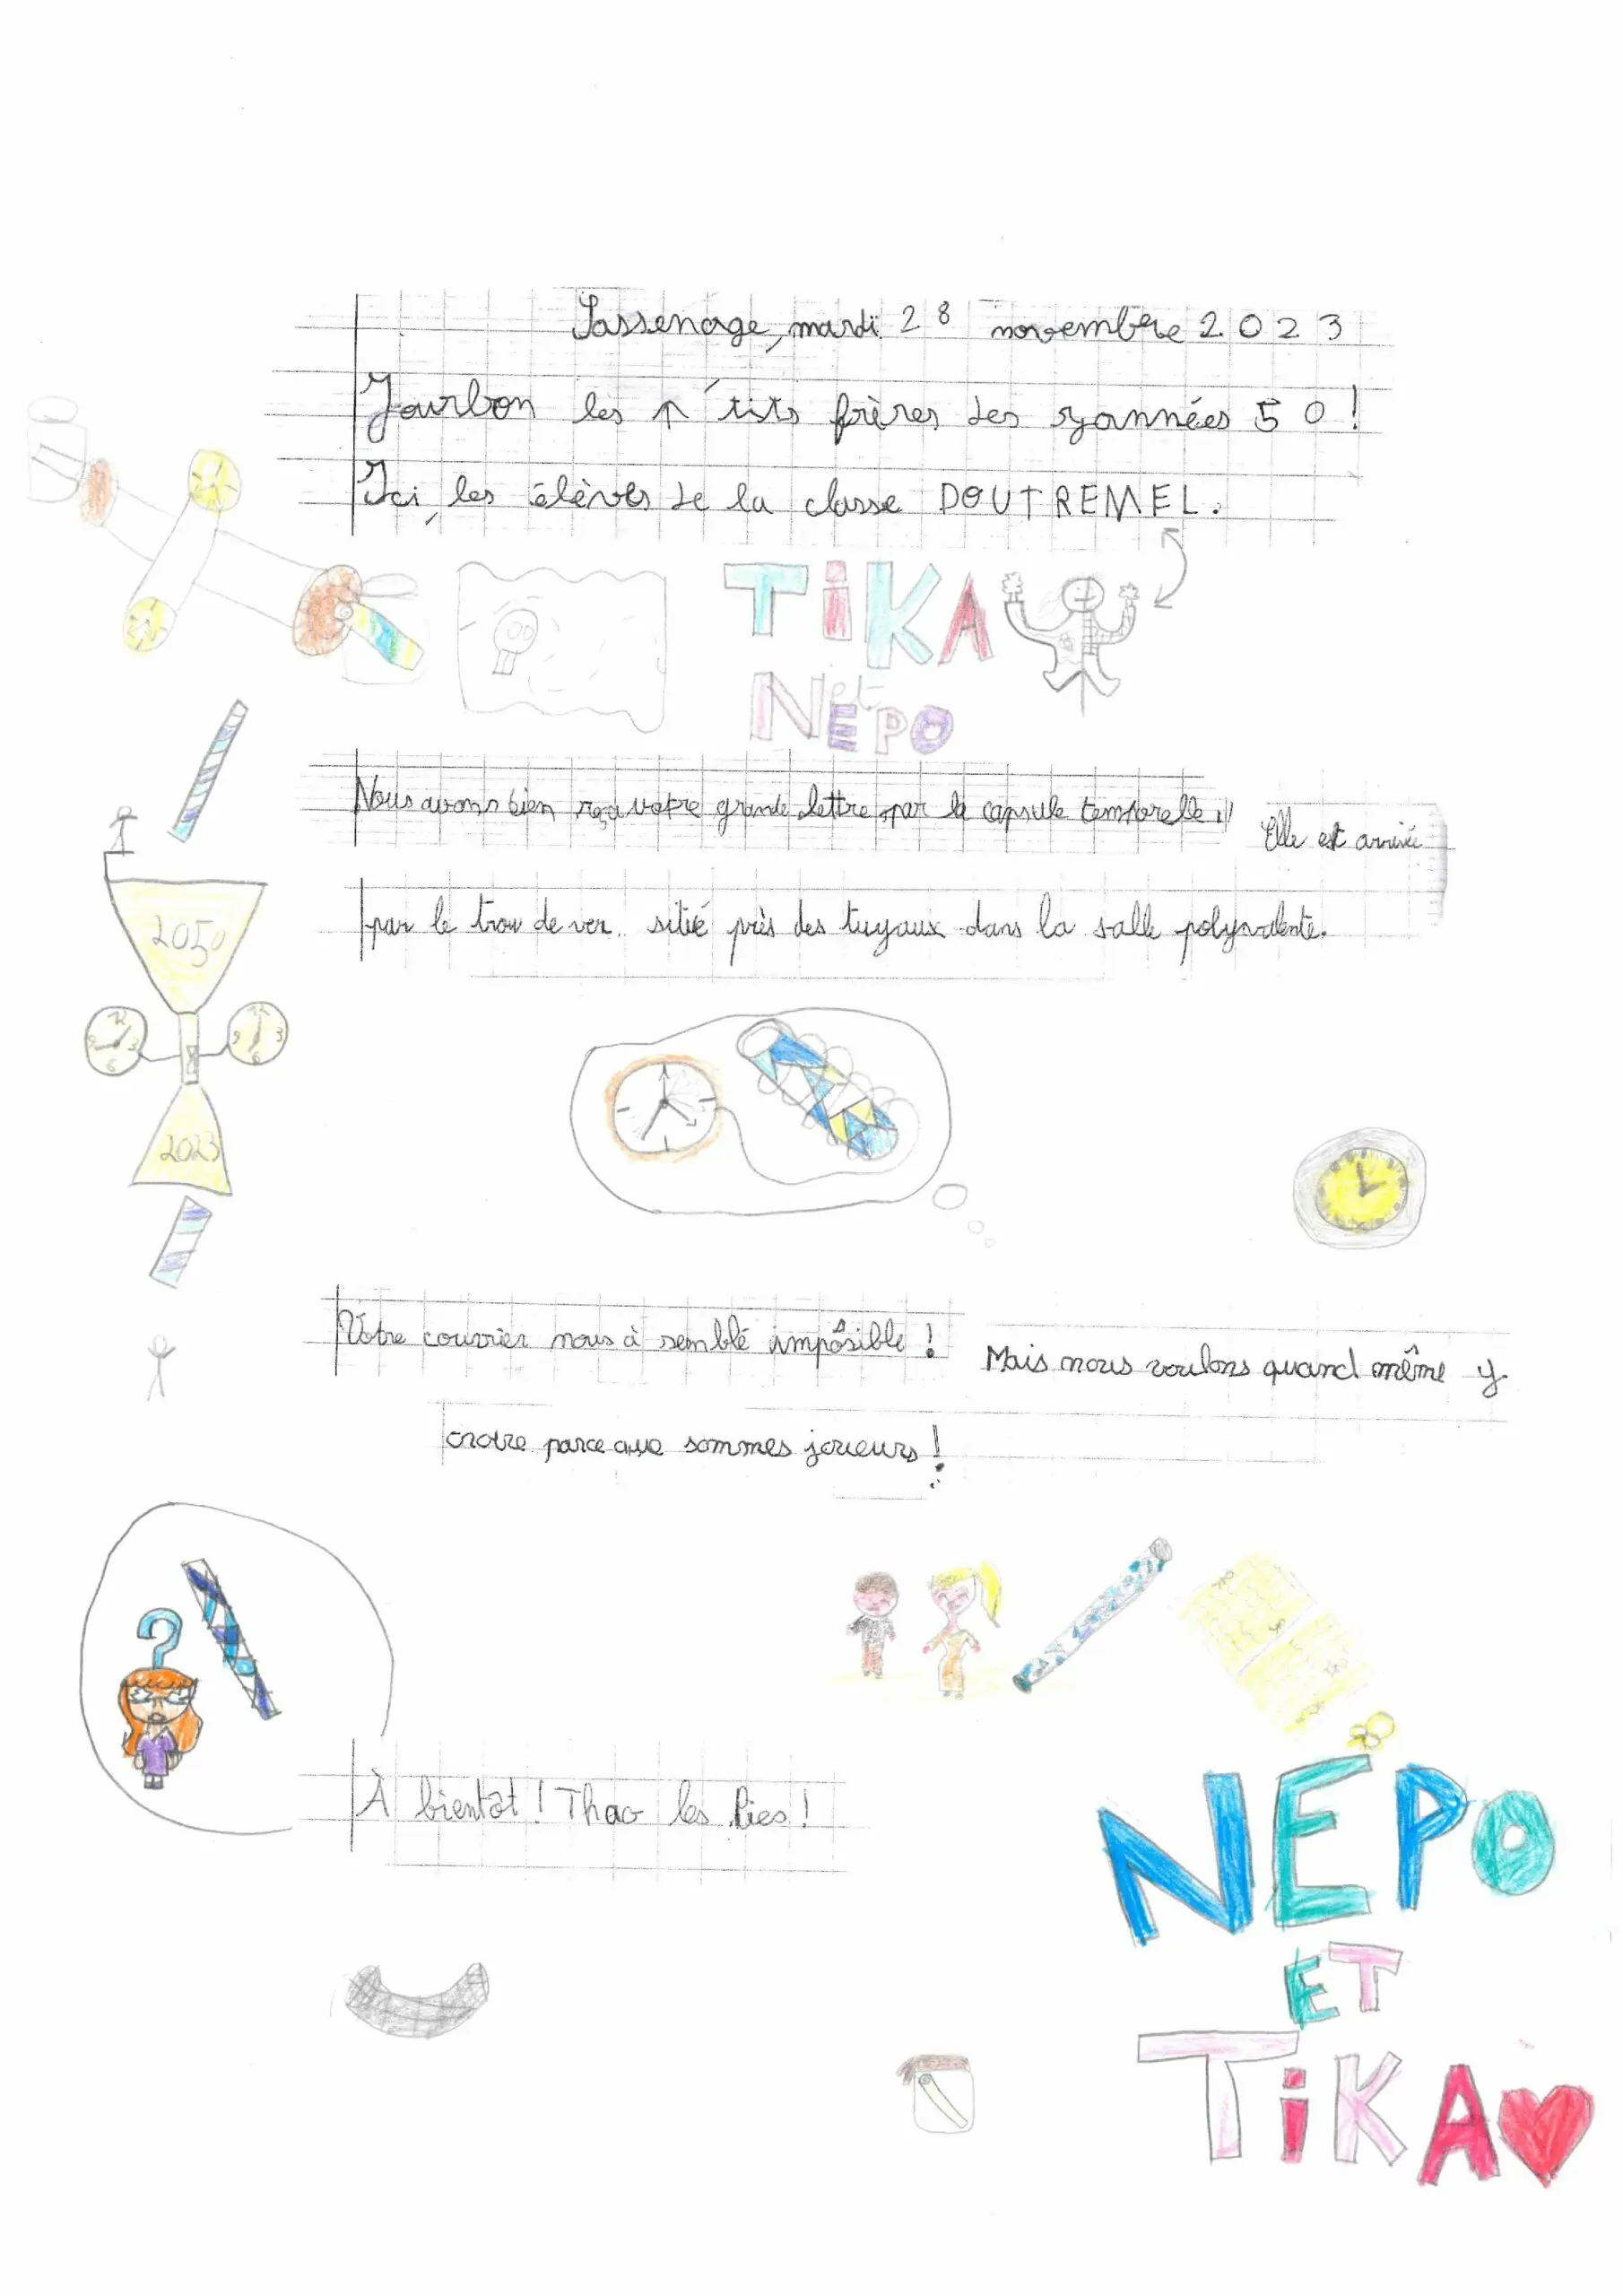 Sassenage, mardi 28 novembre 2023
Jourbon les p'tits frères des zyannées 50!
Ici, les élèves de la classe DOUTREMEL.
TiKA
et
NEPO
Nous avons bien reçu votre grande lettre par la capsule temporelle !!
Elle est arrivée
par le trou de ver situé près des tuyaux dans la salle polyvalente.
2050
12
3
6
9
12
3
6
9
2023
Votre courrier nous à semblé impôssible !
Mais nous voulons quand même y
croire parce que sommes joueurs !
?
À bientôt ! Thao les lies !
NÉPO
ET
TiKA